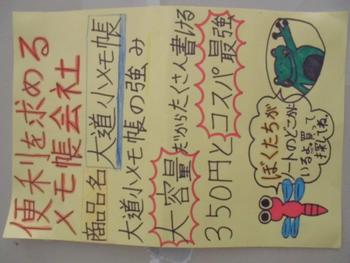 便利を求める
メモ帳会社
商品名 大道小メモ帳
大道小メモ帳の強み
大容量だからたくさん書ける
350円とコスパ最強
ぼくたちが
ノートのどこかに
いるよ買って
探してね。